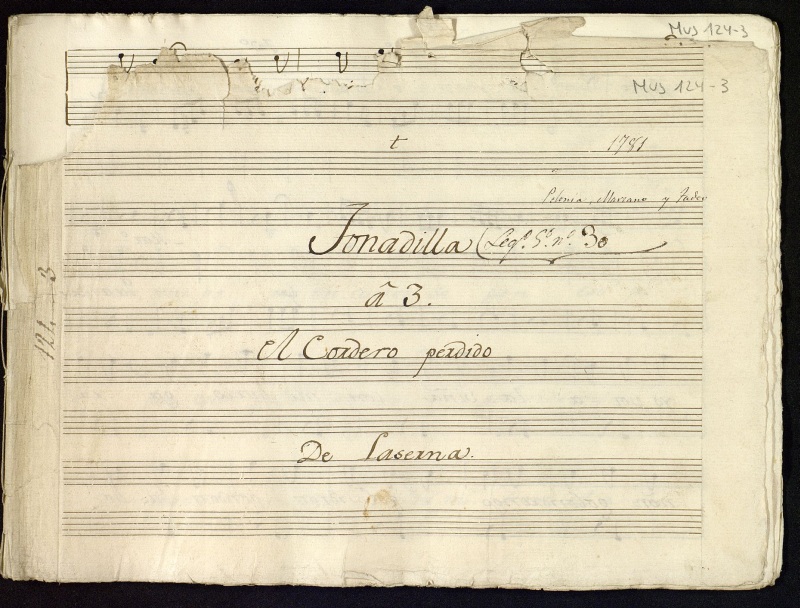 Mus 124-3
Mus 124-3
t
1781
Polonia, Marzano y Tadeo
Tonadilla (Legº. 5º. nº. 30
â 3.
el Cordero perdido
De Laserna.
124-3